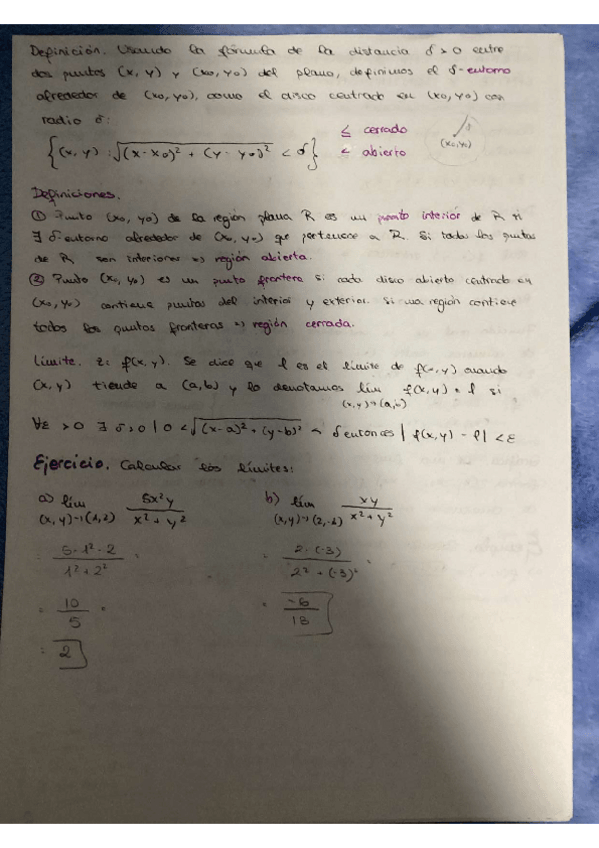 Definición. Usando la fórmula de la distancia δ > 0 entre
dos puntos (x, y) y (x0, y0) del plano, definimos el δ-entorno
alrededor de (x0, y0), como el disco centrado en (x0, y0) con
radio δ:
{(x, y) : √((x-x0)² + (y-y0)²) < δ}
≤ cerrado
< abierto
(x0, y0)
Definiciones.
① Punto (x0, y0) de la región plana R es un punto interior de R si
∃ δ-entorno alrededor de (x0, y0) que pertenece a R. Si todos los puntos
de R son interiores => región abierta.
② Punto (x0, y0) es un punto frontera si cada disco abierto centrado en
(x0, y0) contiene puntos del interior y exterior. Si una región contiene
todos los puntos fronteras => región cerrada.
Límite. z = f(x, y). Se dice que l es el límite de f(x, y) cuando
(x, y) tiende a (a, b) y lo denotamos lím f(x, y) = l si
(x, y)→(a, b)
∀ε > 0 ∃ δ > 0 | 0 < √((x-a)² + (y-b)²) < δ entonces | f(x, y) - l | < ε
Ejercicio. Calcular los límites:
a) lím 5x²y / x² + y²
(x, y)→(1, 2)
b) lím xy / x² + y²
= 5·1²·2 / 1² + 2² =
= 2·(-3) / 2² + (-3)² =
= 10 / 5 =
= -6 / 18
= 2